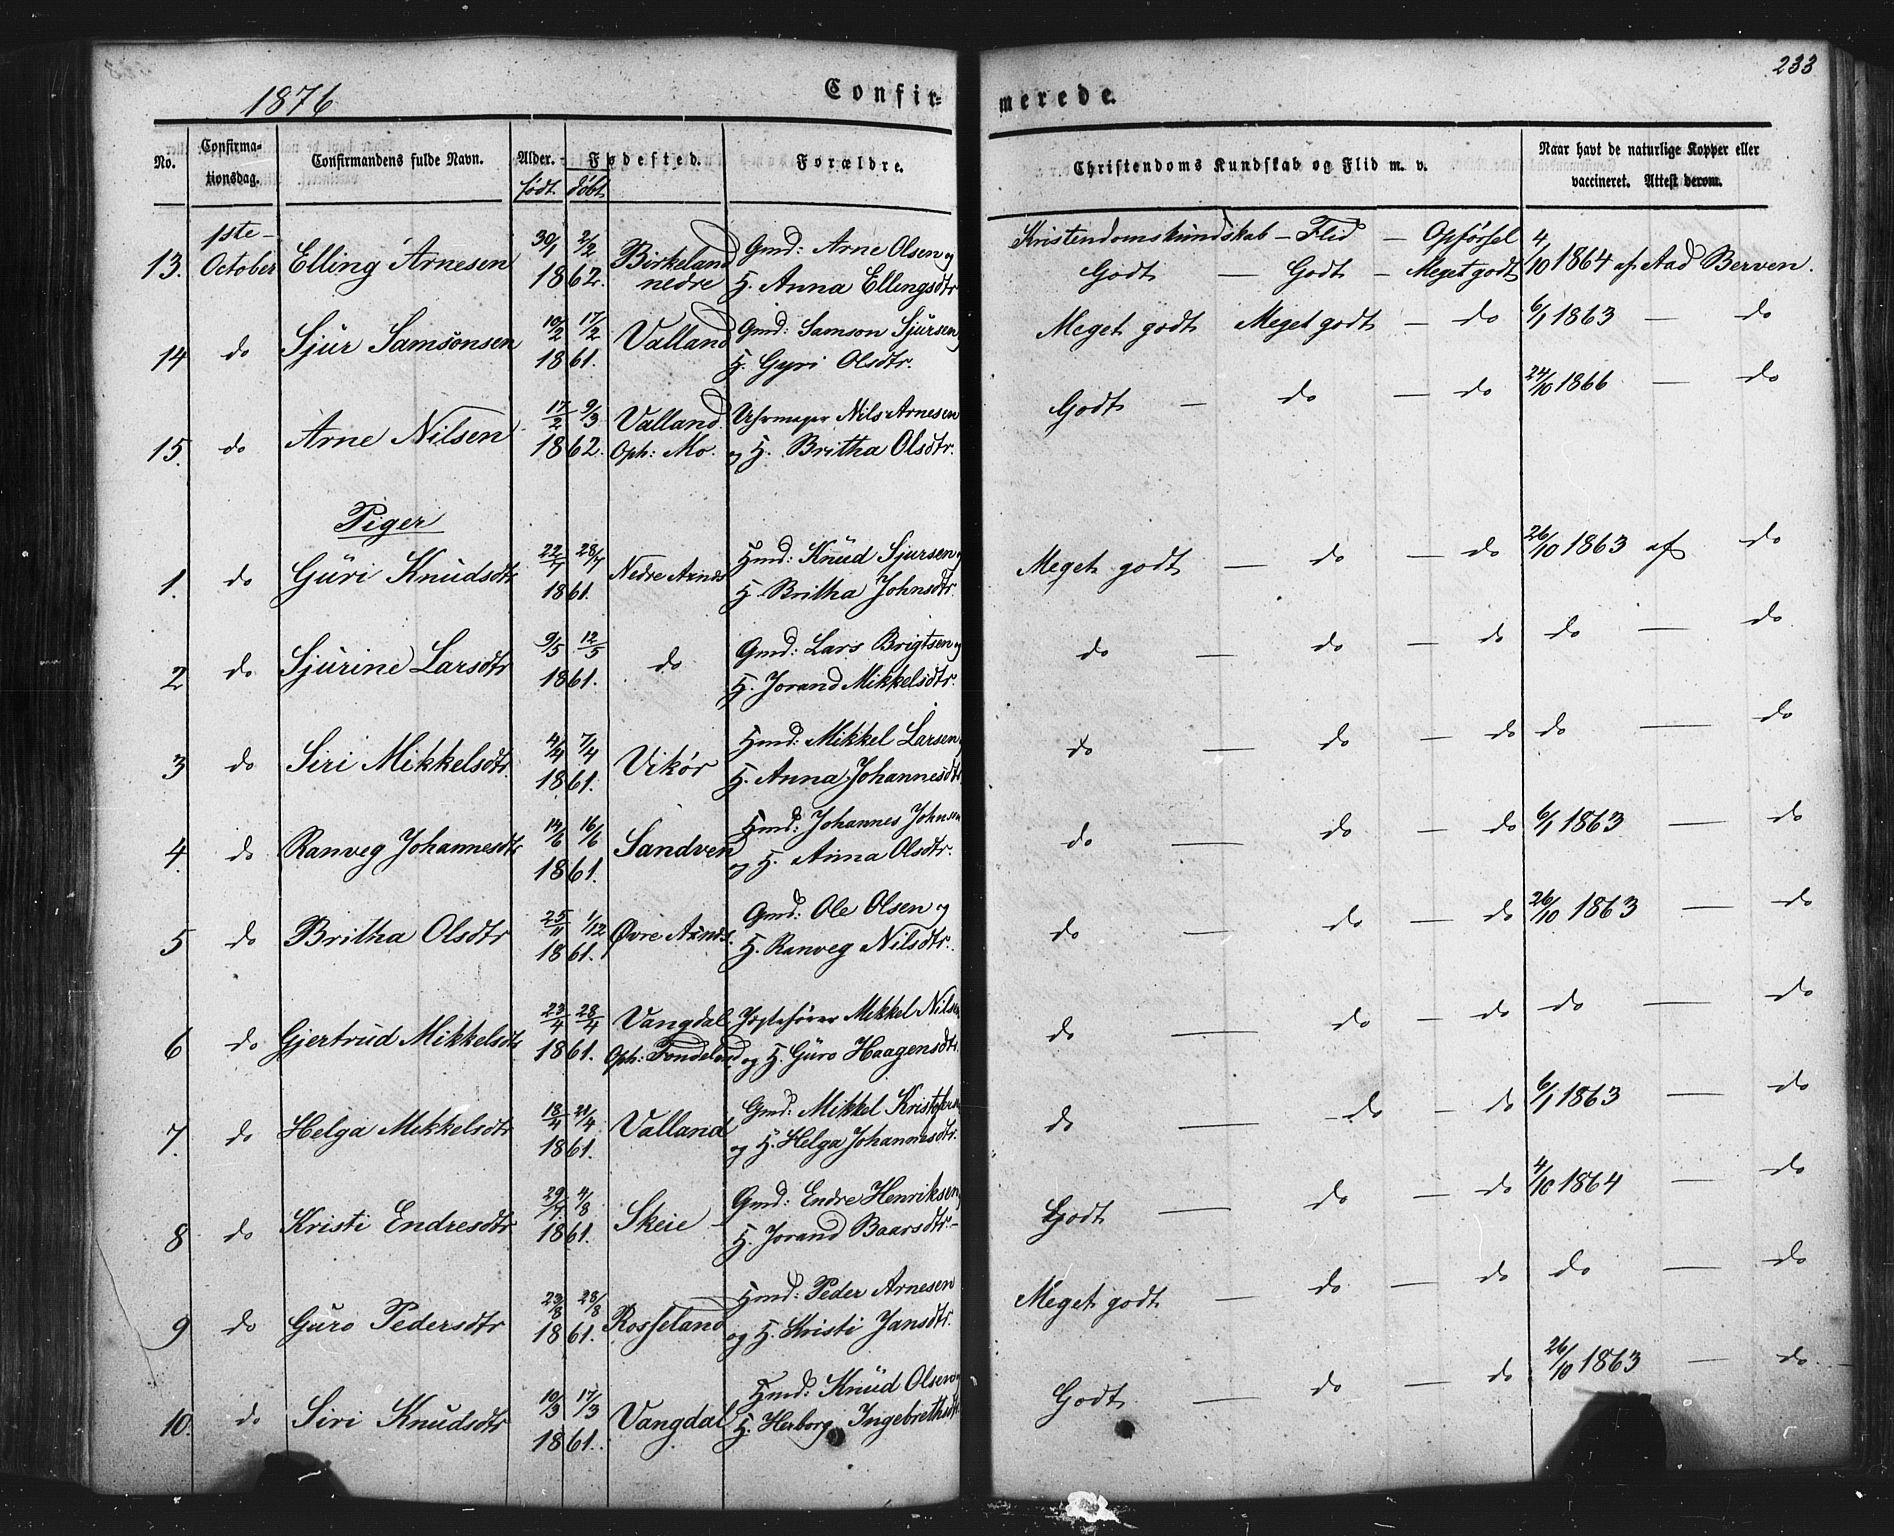 233
1876
Confir-
merede.
No.
Confirma-
tionsdag.
Confirmandens fulde Navn.
Alder.
født
Fødested.
døbt
Forældre.
Christendoms Kundskab og Flid m. v.
Naar havt de naturlige Kopper eller
vaccineret. Attest derom.
1ste 30/1 2/2 Gmd: Arne Olsen og Kristendomskundskab - Flid - Opførsel 4/
13. October Elling Arnesen 1862. Birkeland nedre H. Anna Ellingsdtr Godt — Godt — Meget godt /10 1864 af Aad Berven.
10/2 17/2 Gmd: Samson Sjursen Meget godt Meget godt — do 6/1 1863 — do
14 do Sjur Samsonsen 1861. Valland H. Gyri Olsdtr.
17/2 9/3 Valland. Uhrmager Nils Arnesen Godt — do — do 24/10 1866 — do
15. do Arne Nilsen 1862. Oph: Mo. og H. Britha Olsdtr.
Piger
22/7 28/7 Hmd: Knud Sjursen og Meget godt — do — do 26/10 1863 af do
1. do Guri Knudsdtr 1861. Nedre Axnes H. Britha Johnsdtr.
9/5 12/5 Gmd: Lars Brigtsen og do — do — do do — do
2 do Sjurine Larsdtr 1861. do H. Jorand Mikkelsdtr.
4/4 7/4 Hmd: Mikkel Larsen do — do — do do — do
3 do Siri Mikkelsdtr. 1861. Vikør H. Anna Johannesdtr
14/6 16/6 Hmd: Johannes Johnsen do — do — do 6/1 1863 — do
4. do Ranveg Johannesdtr 1861. Sandven og H. Anna Olsdtr.
25/11 1/12 Gmd: Ole Olsen og do — do — do 26/10 1863 — do
5 do Britha Olsdtr 1861. Øvre Axnes. H. Ranveg Nilsdtr.
23/4 28/4 Vangdal Jægtefører Mikkel Nilsen do — do — do do — do
6 do Gjertrud Mikkelsdtr 1861. Oph: og H. Guro Haagensdtr.
18/4 21/4 Gmd: Mikkel Kristofersen do — do — do 6/1 1863 — do
7. do Helga Mikkelsdtr 1861. Valland og H. Helga Johannesdtr.
29/7 4/8 Gmd: Endre Henriksen Godt — do — do 4/10 1864 — do
8 do Kristi Endresdtr 1861. Skeie H. Jorand Baarsdtr.
23/8 28/8 Hmd: Peder Arnesen Meget godt — do — do do — do
9 do Guro Pedersdtr 1861. Rosseland og H. Kristi Jansdtr.
10/3 17/3 Hmd: Knud Olsen og Godt — do — do 26/10 1863 — do
10. do Siri Knudsdtr 1861. Vangdal H. Herborg Ingebrethsdtr